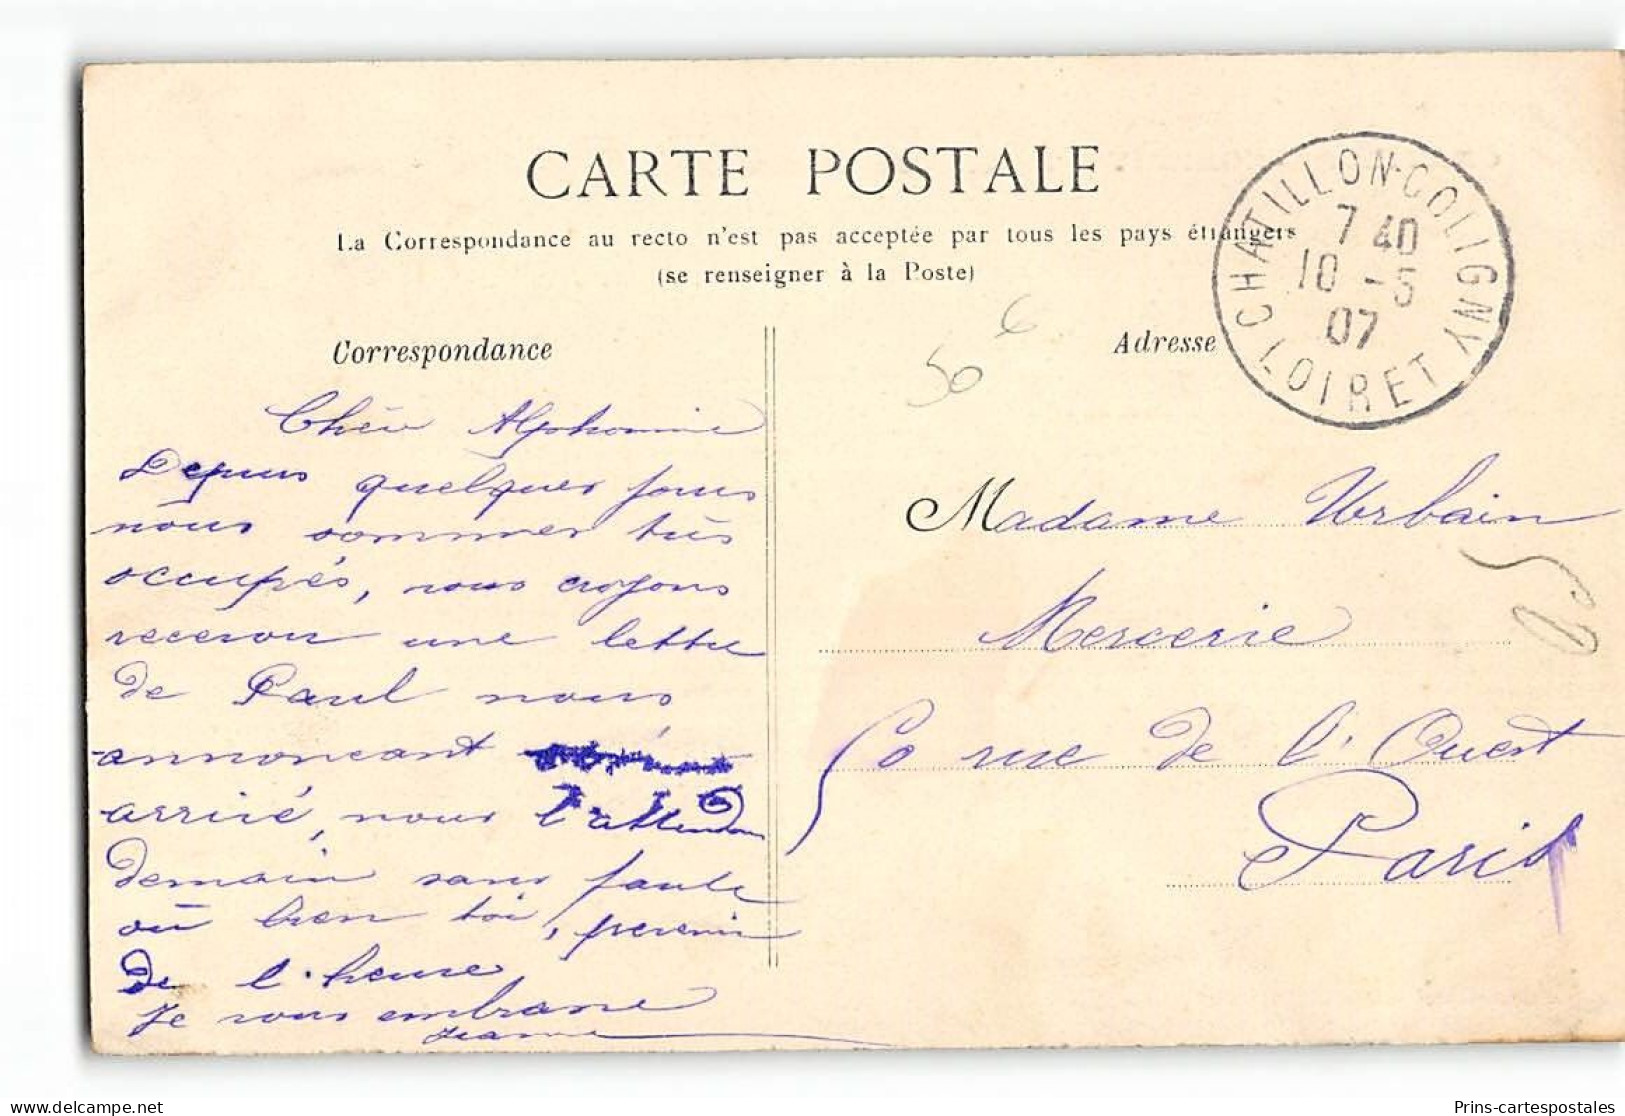 CARTE POSTALE
La Correspondance au recto n'est pas acceptée par tous les pays étrangers
(se renseigner à la Poste)
CHATILLON-COLIGNY
7 40
10 - 5
07
LOIRET
50 €
Correspondance
Adresse
Chère Alphonsine
Depuis quelques jours
nous sommes très
occupés, nous croyons
recevoir une lettre
de Paul nous
annonçant
arrivé, nous l'attendons
demain sans faute
où bien toi, prevenir
de l'heure
Je vous embrasse
Jeanne
Madame Urbain
Mercerie
50 rue de l'Ouest
Paris
delcampe.net
Prins-cartespostales